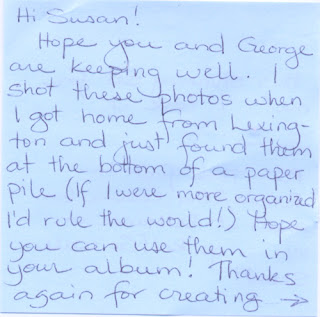 Hi Susan!
Hope you and George
are keeping well. I
shot these photos when
I got home from Lexing-
ton and just found them
at the bottom of a paper
pile (If I were more organized
I'd rule the world!) Hope
you can use them in
your album! Thanks
again for creating →